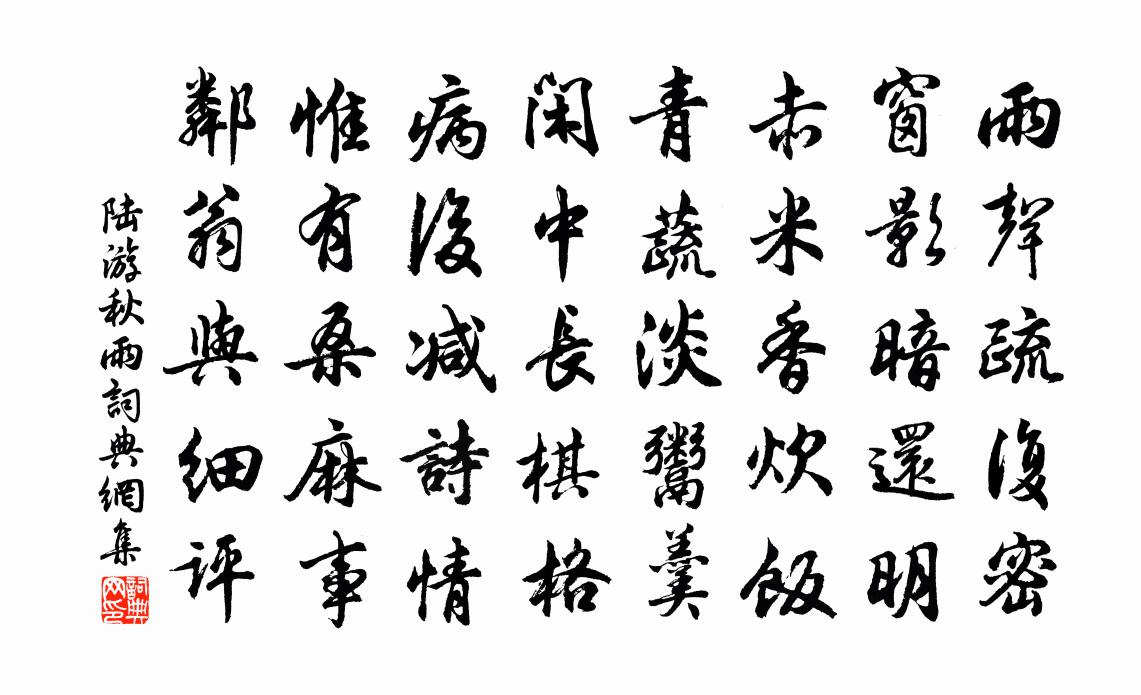 雨聲疏復密
窗影暗還明
赤米香炊飯
青蔬淡鬻羹
閑中長棋格
病後減詩情
惟有桑麻事
鄰翁與細評
陸游秋雨詞典網集
詞典网印